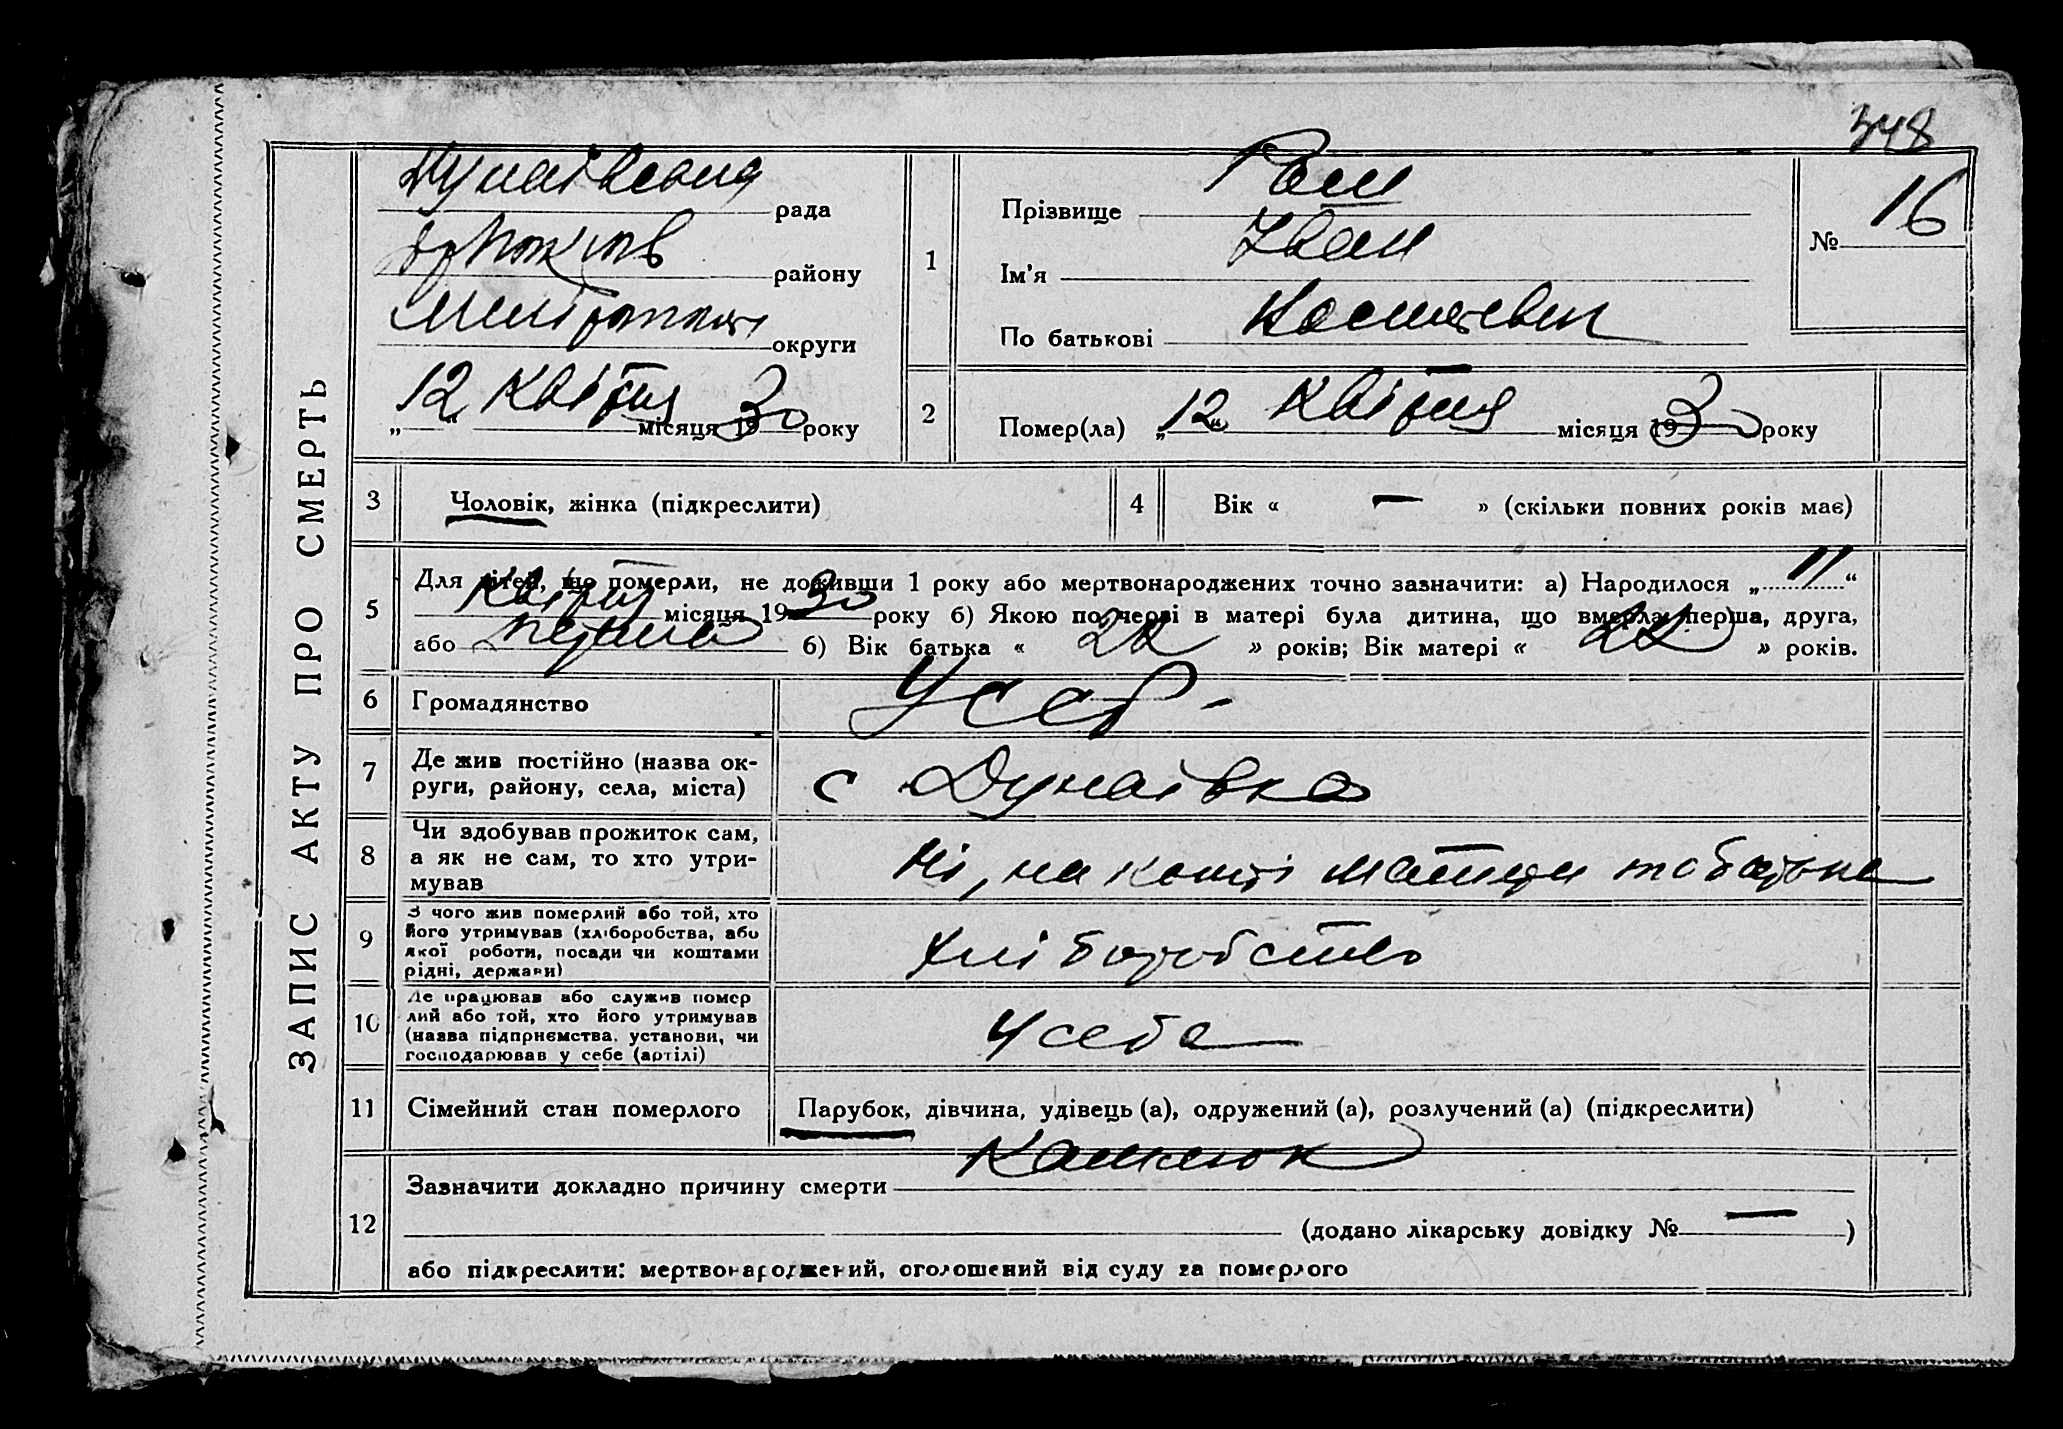 348
ЗАПИС АКТУ ПРО СМЕРТЬ
Дунаївська рада
району
округи
„12“ Квітня місяця 1930 року
1
Прізвище
Ім'я Іван
По батькові
№ 16
2
Помер(ла) „12“ Квітня місяця 1930 року
3
Чоловік, жінка (підкреслити)
4
Вік « — » (скільки повних років має)
5
Для дітей, що померли, не доживши 1 року або мертвонароджених точно зазначити: а) Народилося „11“
Квітня місяця 1930 року б) Якою по черзі в матері була дитина, що вмерла: перша, друга,
або перша б) Вік батька « 22 » років; Вік матері « 22 » років.
6
Громадянство УССР -
7
Де жив постійно (назва ок-
руги, району, села, міста)
с Дунаівка
8
Чи здобував прожиток сам,
а як не сам, то хто утри-
мував
Ні, на кошті матери та батька
9
З чого жив померлий або той, хто
його утримував (хліборобства, або
якої роботи, посади чи коштами
рідні, держави)
Хліборобство
10
Де працював або служив помер
лий або той, хто його утримував
(назва підприємства, установи, чи
господарював у себе (артілі)
У себе
11
Сімейний стан померлого
Парубок, дівчина, удівець (а), одружений (а), розлучений (а) (підкреслити)
12
Зазначити докладно причину смерти
(додано лікарську довідку № — )
або підкреслити: мертвонароджений, оголошений від суду за померлого